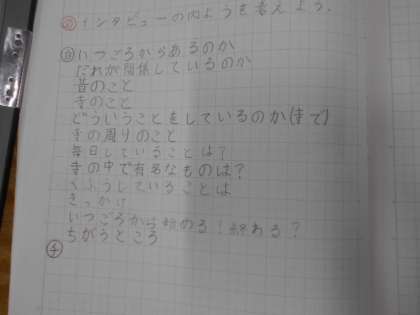 ㋱インタビューの内ようを考えよう。
㋐いつごろからあるのか
だれが関係しているのか
昔のこと
寺のこと
どういうことをしているのか(寺で)
寺の周りのこと
毎日していることは?
寺の中で有名なものは?
していることは
きっかけ
いつごろから始める!終わる?
ちがうところ
㋠